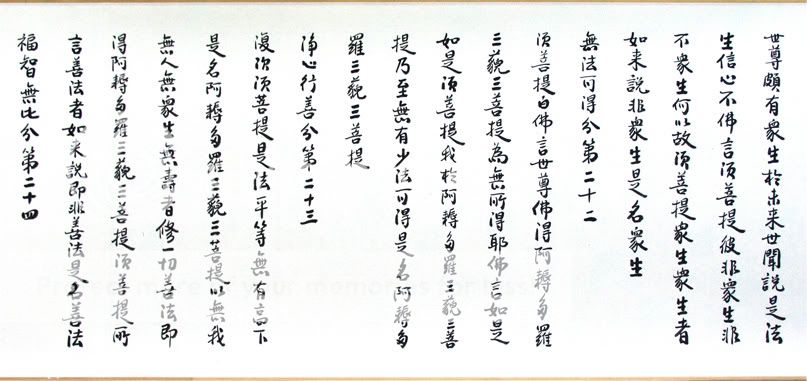 世尊頗有衆生於未来世聞説是法
生信心不佛言须菩提彼非衆生非
不衆生何以故须菩提衆生衆生者
如来說非衆生是名衆生
無法可得分第二十二
须菩提白佛言世尊佛得阿耨多羅
三藐三菩提為無所得耶佛言如是
如是须菩提我於阿耨多羅三藐三菩
提乃至無有少法可得是名阿耨多
羅三藐三菩提
净心行善分第二十三
復次须菩提是法平等無有高下
是名阿耨多羅三藐三菩提以無我
無人無衆生無壽者修一切善法即
得阿耨多羅三藐三菩提须菩提所
言善法者如来説即非善法是名善法
福智無比分第二十四
more of your memories for less